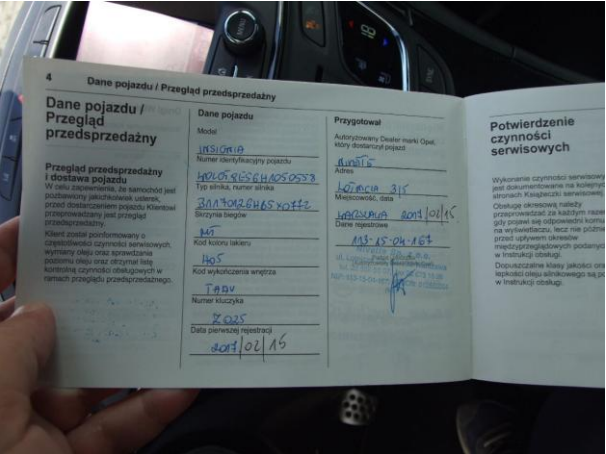 MENU
4 Dane pojazdu / Przegląd przedsprzedażny
Dane pojazdu /
Przegląd
przedsprzedażny
Przegląd przedsprzedażny
i dostawa pojazdu
W celu zapewnienia, że samochód jest
pozbawiony jakichkolwiek usterek,
przed dostarczeniem pojazdu Klientowi
przeprowadzany jest przegląd
przedsprzedażny.
Klient został poinformowany o
częstotliwości czynności serwisowych,
wymiany oleju oraz sprawdzania
poziomu oleju oraz otrzymał listę
kontrolną czynności obsługowych w
ramach przeglądu przedsprzedażnego.
Dane pojazdu
Model
INSIGNIA
Numer identyfikacyjny pojazdu
Typ silnika, numer silnika
Skrzynia biegów
MT
Kod koloru lakieru
Kod wykończenia wnętrza
TADV
Numer kluczyka
Z025
Data pierwszej rejestracji
2017/02/15
Przygotował
Autoryzowany Dealer marki Opel,
który dostarczył pojazd
Adres
ŁOPUSZA 315
Miejscowość, data
WARSZAWA 2017/02/15
Dane rejestrowe
113-15-04-167
Potwierdzenie
czynności
serwisowych
Wykonanie czynności serwisowych
jest dokumentowane na kolejnych
stronach Książeczki serwisowej.
Obsługę okresową należy
przeprowadzać za każdym razem,
gdy pojawi się odpowiedni komu
na wyświetlaczu, lecz nie później
przed upływem okresów
międzyprzeglądowych podanych
w Instrukcji obsługi.
Dopuszczalne klasy jakości oraz
lepkości oleju silnikowego są po
w Instrukcji obsługi.